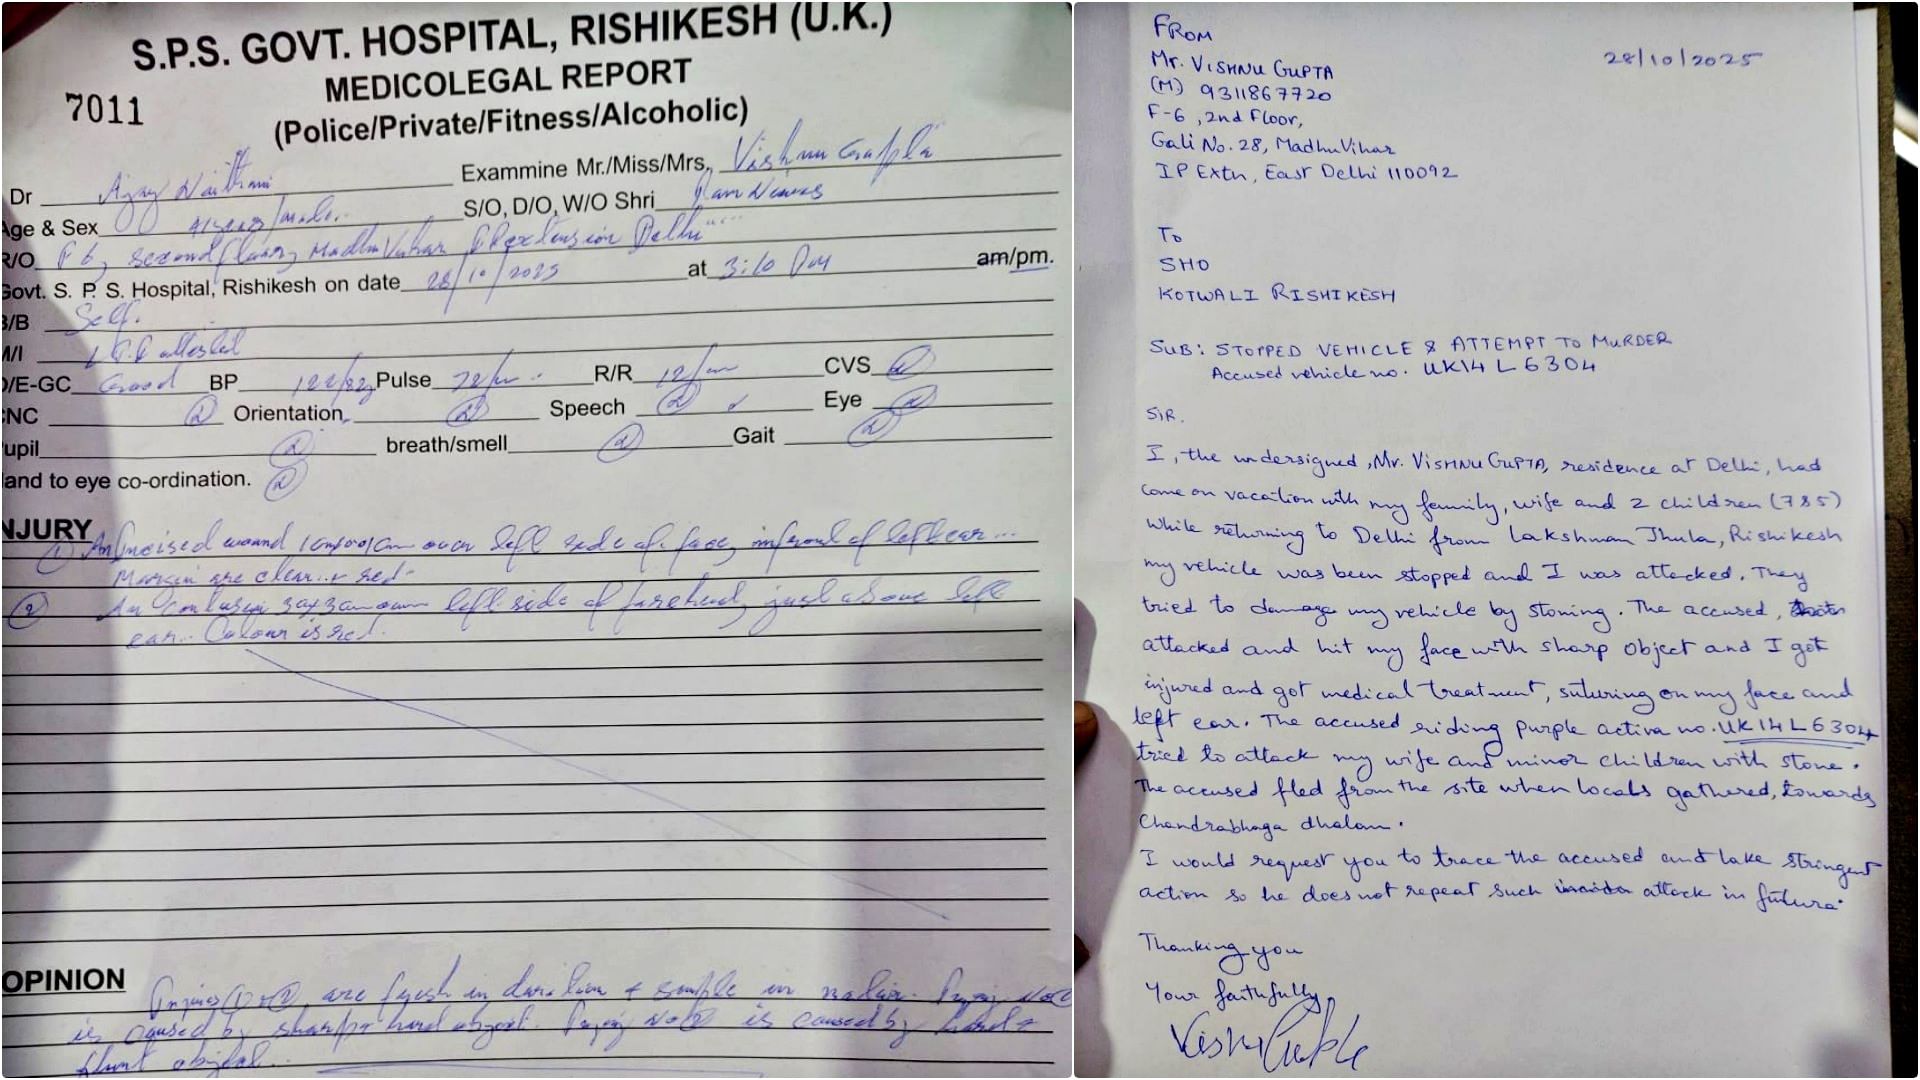 S.P.S. GOVT. HOSPITAL, RISHIKESH (U.K.)
MEDICOLEGAL REPORT
7011
(Police/Private/Fitness/Alcoholic)
Dr Ajay Naithani Exammine Mr./Miss/Mrs. Vishnu Gupta
Age & Sex 41years/male. S/O, D/O, W/O Shri Ram Niwas
R/O F 6, second floor, Madhu Vihar IP extension Delhi
Govt. S. P. S. Hospital, Rishikesh on date 28/10/2025 at 3:10 PM am/pm.
B/B Self.
M/I attested
O/E-GC Good BP 122/82 Pulse 72/m R/R 12/m CVS
CNC Orientation Speech Eye
upil breath/smell Gait
and to eye co-ordination.
NJURY
1) An Incised wound over left side of face, infront of left ear...
Margin are clear & red.
2) An contusion over left side of forehead, just above left
ear. Colour is red.
OPINION
Injuries 1 & 2, are fresh in duration & simple in nature. Injury No
is caused by sharp & hard object. Injury No 2 is caused by hard &
blunt object.
FROM
28/10/2025
Mr. VISHNU GUPTA
(M) 9311867720
F-6, 2nd Floor,
Gali No. 28, Madhu Vihar
IP Extn, East Delhi 110092
To
SHO
KOTWALI RISHIKESH
SUB: STOPPED VEHICLE & ATTEMPT TO MURDER
Accused vehicle no. UK14 L 6304
SIR.
I, the undersigned, Mr. VISHNU GUPTA, residence at Delhi, had
come on vacation with my family, wife and 2 children (7&5)
While returning to Delhi from Lakshman Jhula, Rishikesh
my vehicle was been stopped and I was attacked. They
tried to damage my vehicle by stoning. The accused,
attacked and hit my face with sharp object and I got
injured and got medical treatment, suturing on my face and
left ear. The accused riding purple activa no. UK 14 L 6304
tried to attack my wife and minor children with stone.
The accused fled from the site when locals gathered, towards
Chandrabhaga dhalan.
I would request you to trace the accused and take stringent
action so he does not repeat such attack in future.
Thanking you
Your faithfully
Vishnu Gupta